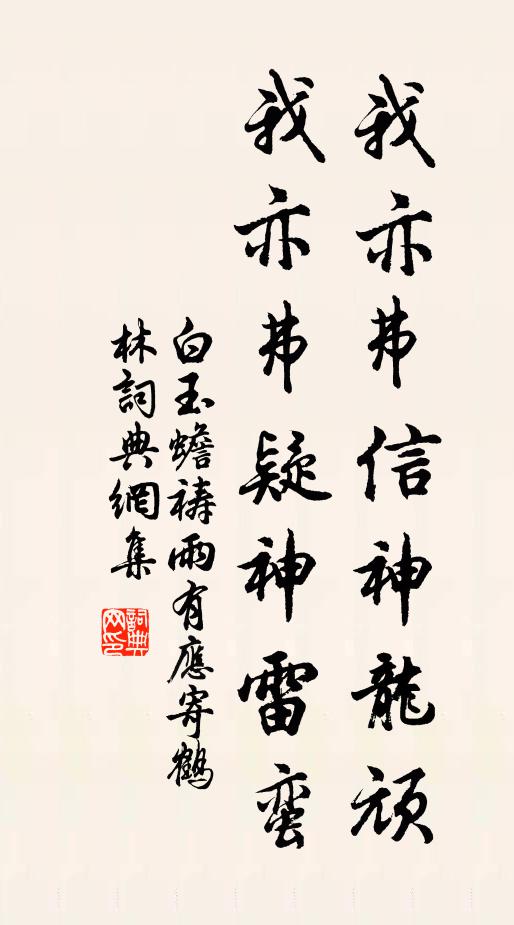 我亦弗信神龍頑
我亦弗疑神雷蛮
白玉蟾禱雨有應寄鶴
林詞典網集
詞典网印